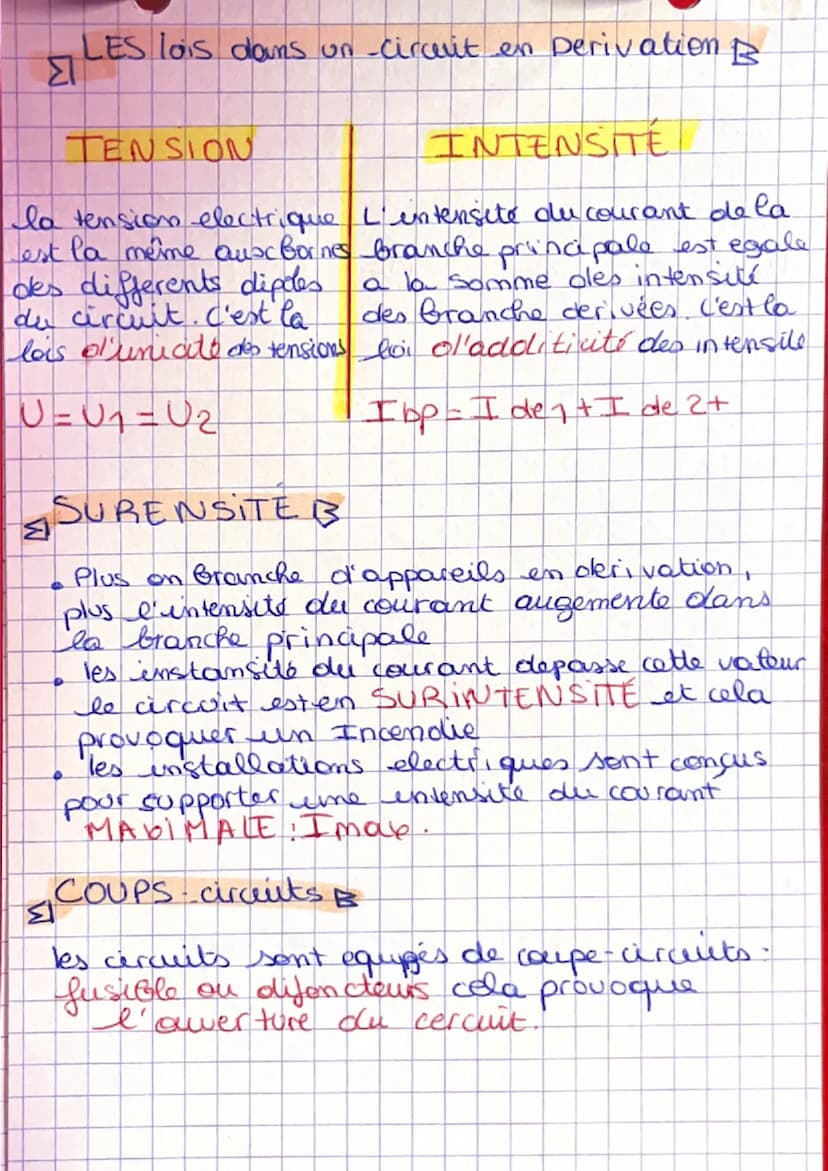 LES lois dans un circuit en Derivation
TENSION
la tension electrique
est la même aux Bornes
des differents dipôles
du circuit. C'est la
lois d'unicité des tensions
U = U1 = U2
INTENSITÉ
L'intensité du courant de la
branche principale est egale
a la somme des intensité
des branche derivées. C'est la
loi d'additicité des intensite
Ibp = I de 1 + I de 2 +
SURENSITÉ
• Plus on branche d'appareils en derivation,
plus l'intensité du courant augemente dans
la branche principale
• les instansité du courant depasse cette valeur
le circuit est en SURINTENSITÉ et cela
provoquer un Incendie
• les installations electriques sont conçus
pour supporter une intensite du courant
MAXIMALE : Imax.
COUPS-circuits
les circuits sont equipés de coupe-circuits :
fusible ou disjoncteurs cela provoque
l'ouverture du cercuit.